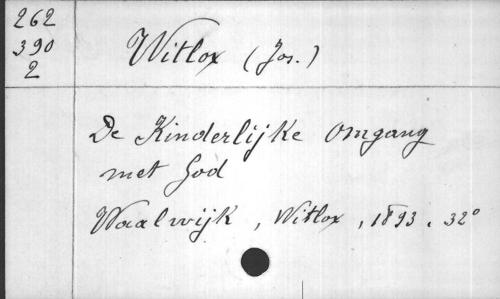 262
390
2
Witlox (Jos.)
De Kinderlijke Omgang
met God
Waalwijk, Witlox, 1893. 32°